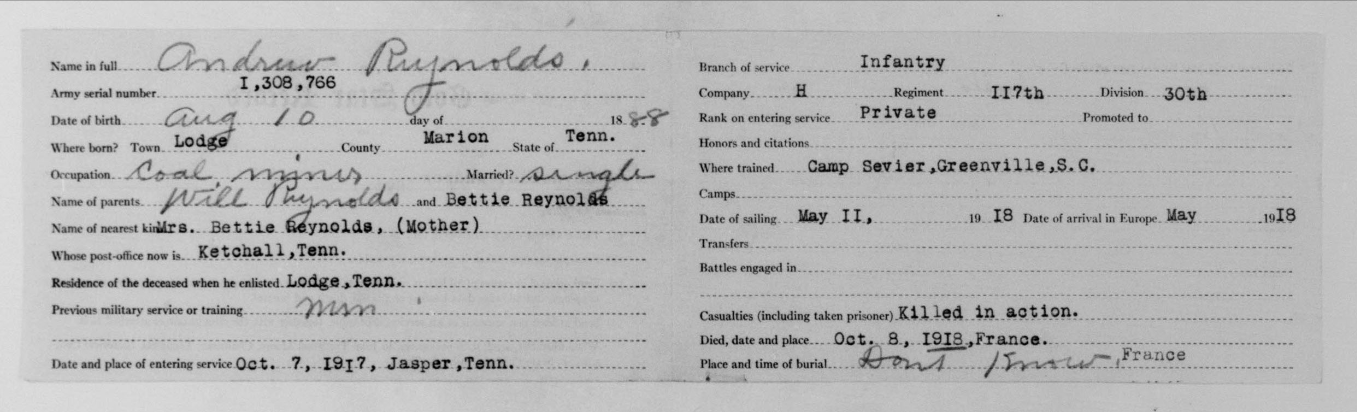 Name in full Andrew Reynolds.
Army serial number I,308,766
Date of birth Aug 10 day of 18 88
Where born? Town Lodge County Marion State of Tenn.
Occupation Coal miner Married? single
Name of parents Will Reynolds and Bettie Reynolds
Name of nearest kin Mrs. Bettie Reynolds, (Mother)
Whose post-office now is Ketchall,Tenn.
Residence of the deceased when he enlisted Lodge,Tenn.
Previous military service or training
Date and place of entering service Oct. 7, 19I7, Jasper,Tenn.
Branch of service Infantry
Company H Regiment II7th Division 30th
Rank on entering service Private Promoted to
Honors and citations
Where trained Camp Sevier,Greenville,S.C.
Camps
Date of sailing May II, 19 I8 Date of arrival in Europe May 19I8
Transfers
Battles engaged in
Casualties (including taken prisoner) Killed in action.
Died, date and place Oct. 8, I9I8,France.
Place and time of burial Dont Know, France